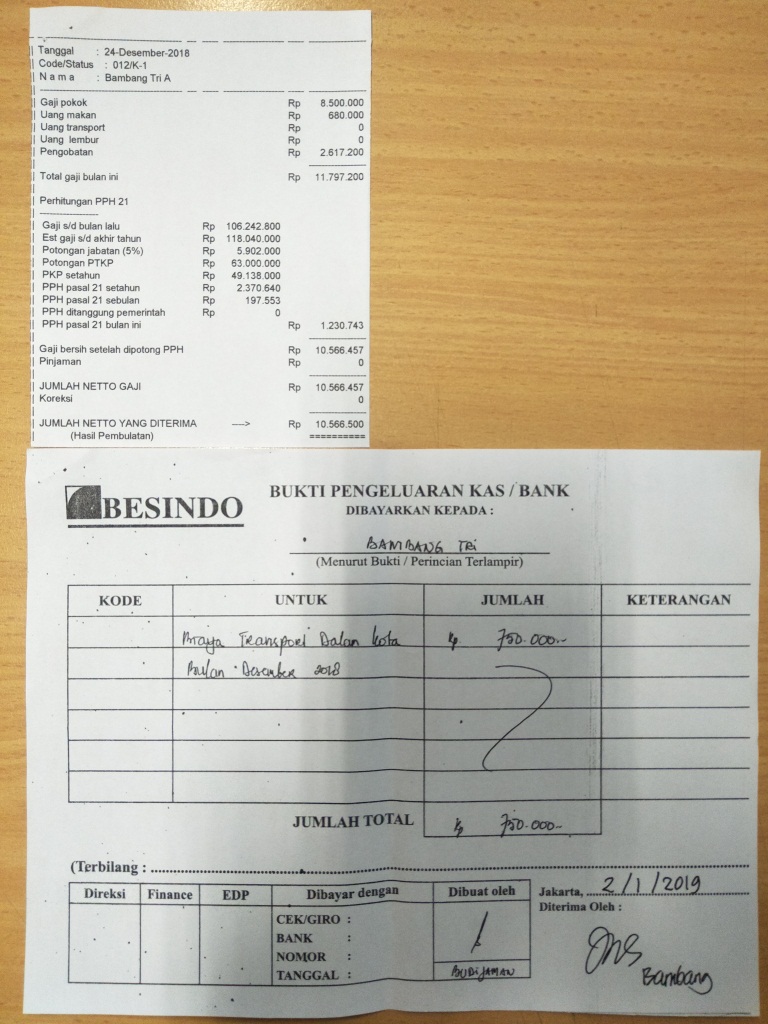 Tanggal : 24-Desember-2018
Code/Status : 012/K-1
N a m a : Bambang Tri A
Gaji pokok Rp 8.500.000
Uang makan Rp 680.000
Uang transport Rp 0
Uang lembur Rp 0
Pengobatan Rp 2.617.200
Total gaji bulan ini Rp 11.797.200
Perhitungan PPH 21
Gaji s/d bulan lalu Rp 106.242.800
Est gaji s/d akhir tahun Rp 118.040.000
Potongan jabatan (5%) Rp 5.902.000
Potongan PTKP Rp 63.000.000
PKP setahun Rp 49.138.000
PPH pasal 21 setahun Rp 2.370.640
PPH pasal 21 sebulan Rp 197.553
PPH ditanggung pemerintah Rp 0
PPH pasal 21 bulan ini Rp 1.230.743
Gaji bersih setelah dipotong PPH Rp 10.566.457
Pinjaman Rp 0
JUMLAH NETTO GAJI Rp 10.566.457
Koreksi 0
JUMLAH NETTO YANG DITERIMA ----> Rp 10.566.500
(Hasil Pembulatan) ==========
BESINDO
BUKTI PENGELUARAN KAS / BANK
DIBAYARKAN KEPADA :
BAMBANG TRI
(Menurut Bukti / Perincian Terlampir)
KODE UNTUK JUMLAH KETERANGAN
Biaya Transport Dalam Kota Rp 750.000.-
Bulan Desember 2018
JUMLAH TOTAL Rp 750.000.-
(Terbilang :
Direksi Finance EDP Dibayar dengan Dibuat oleh
CEK/GIRO :
BANK :
NOMOR :
TANGGAL :
BUDIJAMAN
Jakarta, 2/1/2019
Diterima Oleh :
Bambang